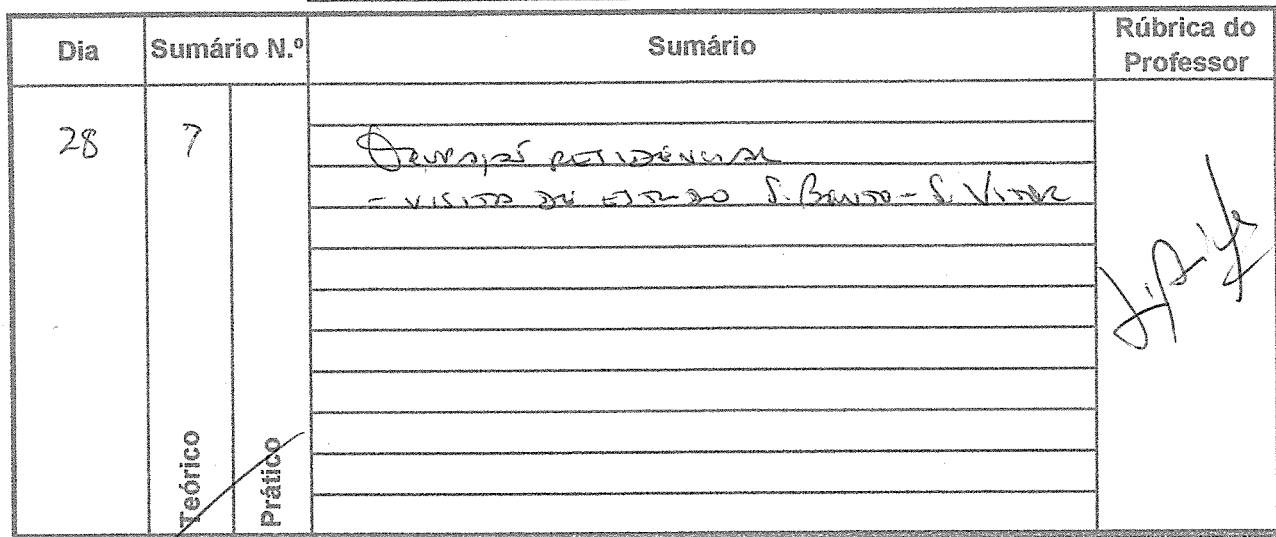 Dia Sumário N.º Sumário Rúbrica do Professor
28 7
RESIDÊNCIAL
- VISITA DE ESTUDO S. BENTO - S. VITOR
Teórico Prático